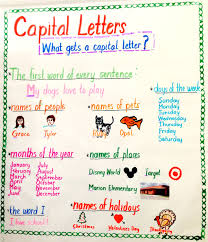 Capital Letters
What gets a capital letter?
The first word of every sentence
My dogs love to play.
names of people
names of pets
days of the week
Grace
Tyler
Ruff
Opal
Sunday
Monday
Tuesday
Wednesday
Thursday
Friday
Saturday
months of the year
January July
February August
March September
April October
May November
June December
names of places
Disney World
Target
Marion Elementary
the word I
I love school!
names of holidays
Christmas
Valentine's Day
Thanksgiving